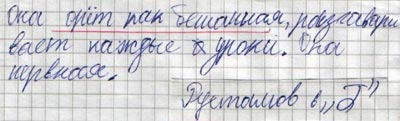 Она орёт как бешанная, розгавари
вает каждые уроки. Она
нервная.
Рустамов 6 „Г”